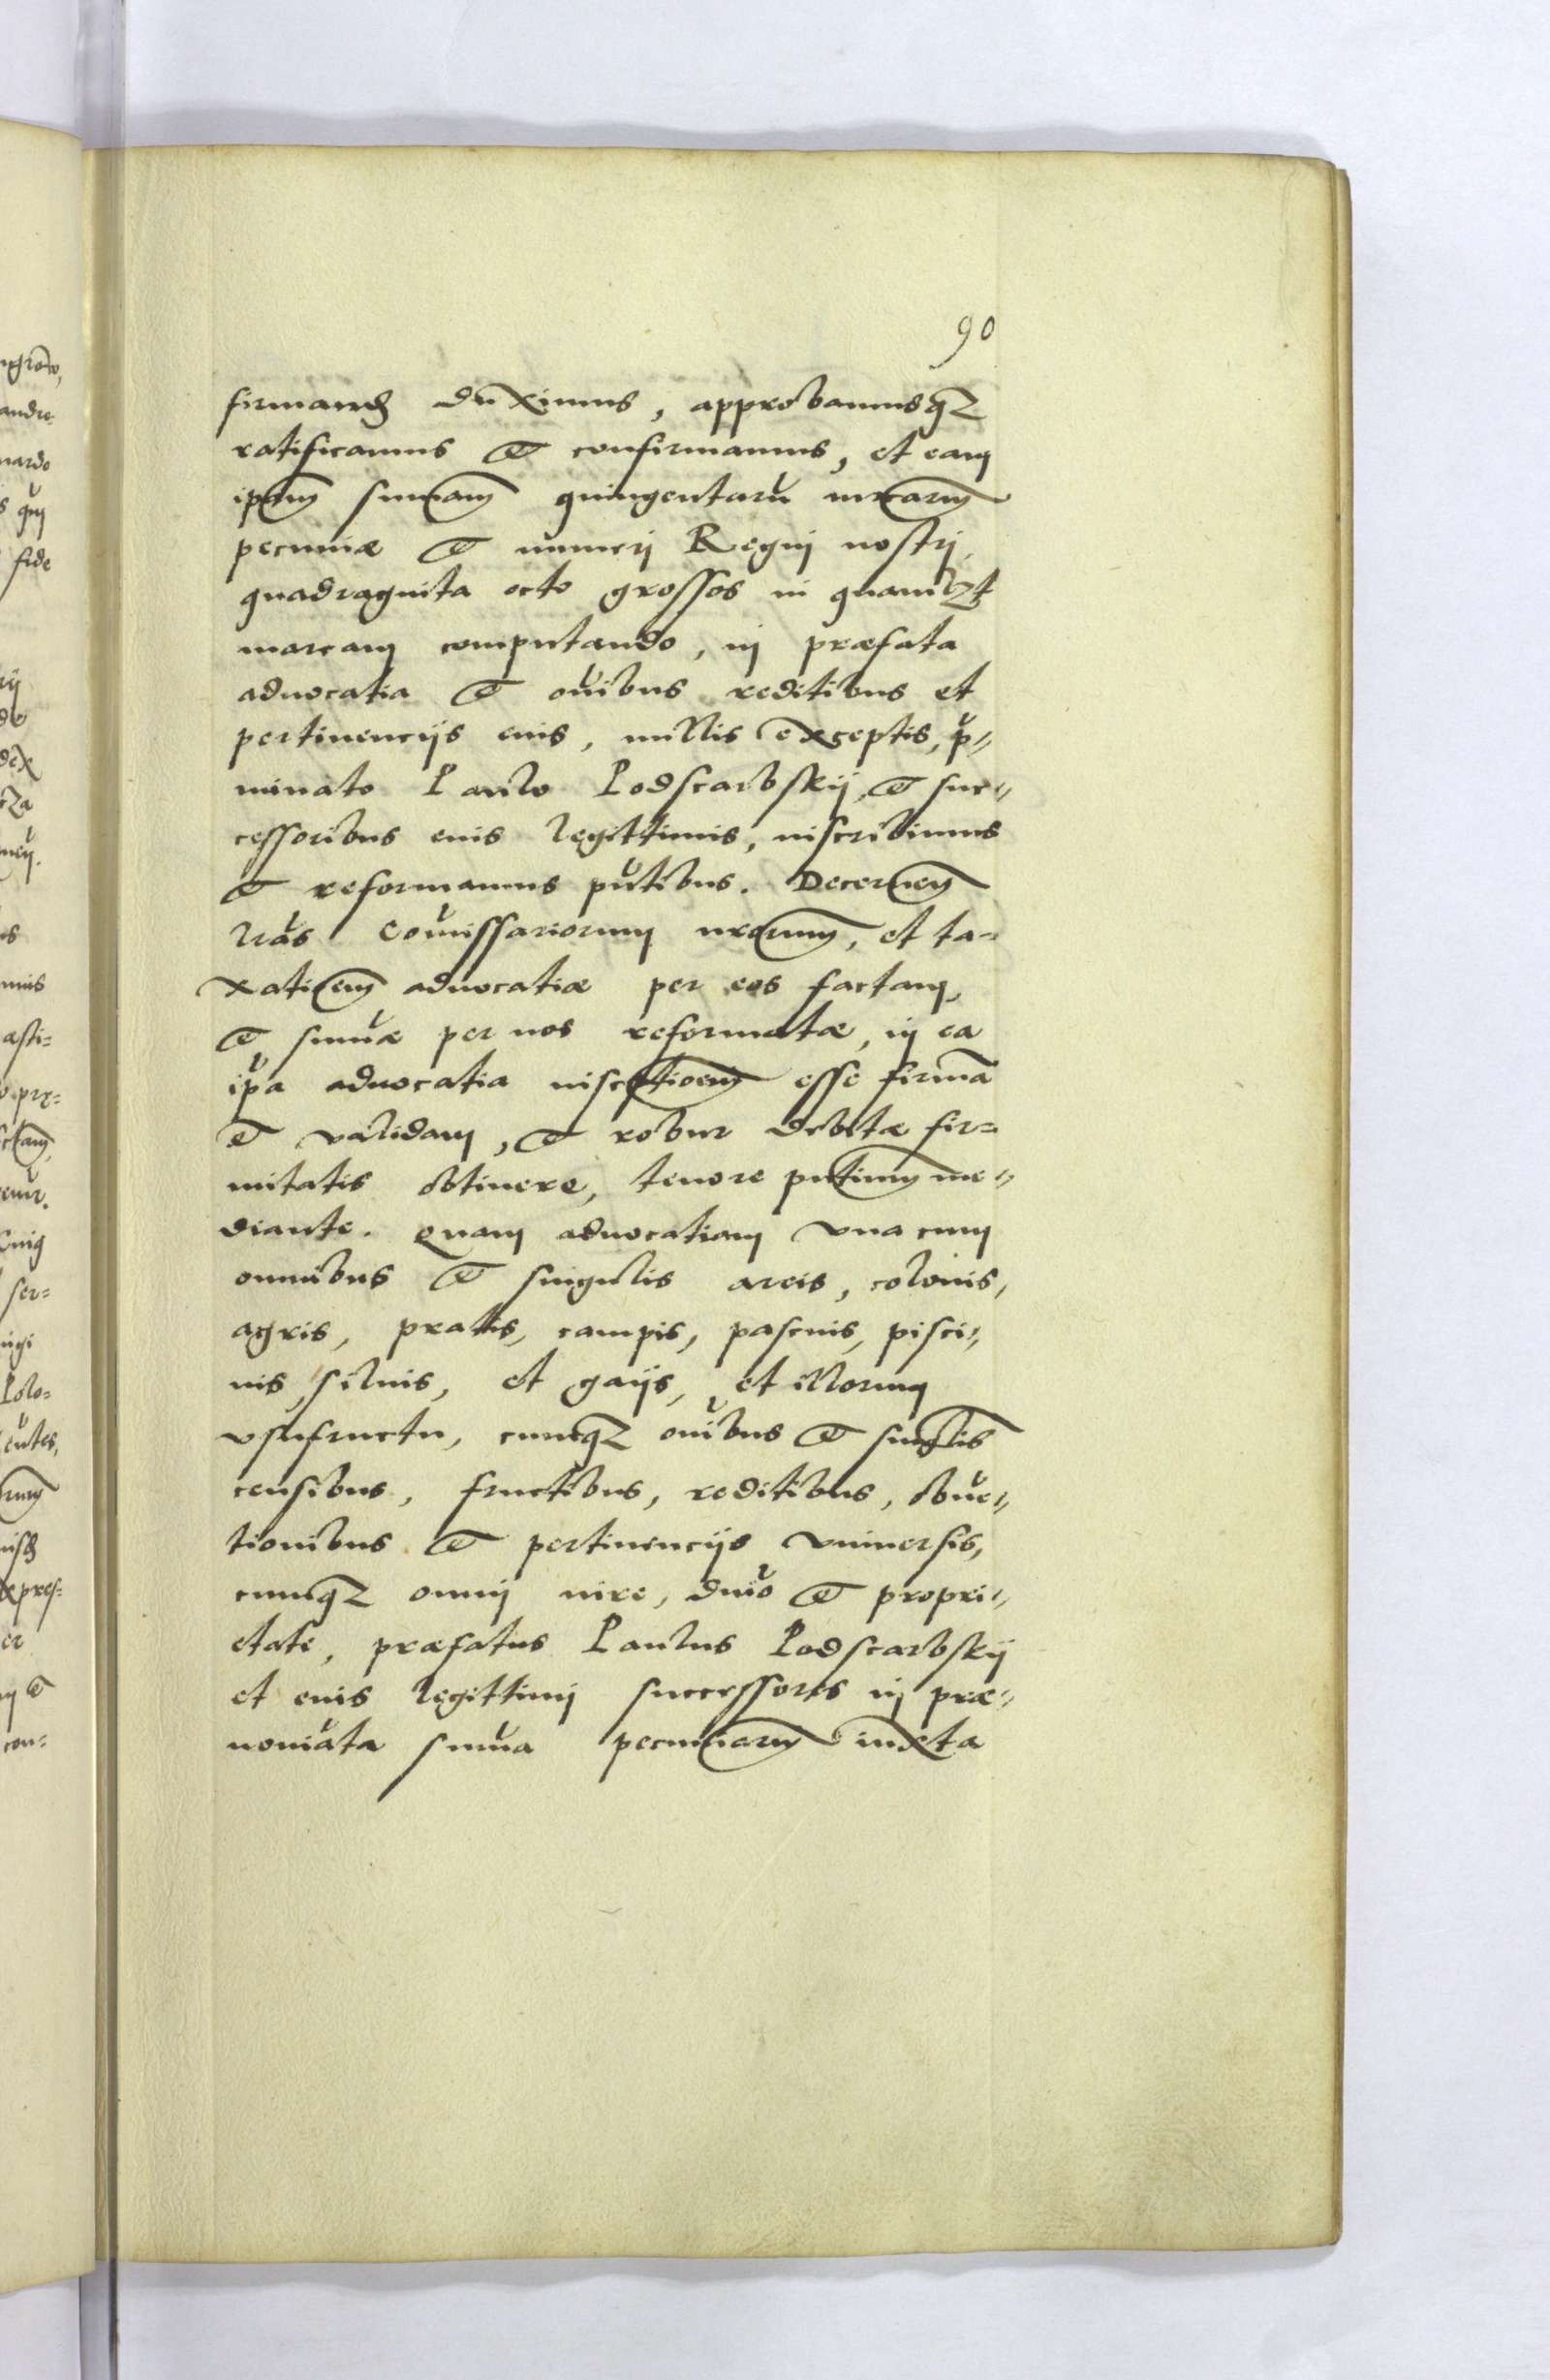 90
firmand duximus, approbamusq₃
ratificamus et confirmamus, et eam
ipam sumam quingentarũ mrcarum
pecuniæ et numeri Regni nostri,
quadraginta octo grossos in quamlzt
marcam computando, in præfata
aduocatia et oibus reditibus et
pertinencijs eius, nullis exceptis, p=
minato Paulo Podscarbskij, et suc=
cessoribus eius legittimis, inscribimus
et reformamus pntibus. Decernen
lras Comissariorum nrorum, et ta=
xatioem aduocatiæ per eos factam,
et sumæ per nos reformatæ, in ea
ipa aduocatia inscptioem esse firmã
et validam, et robur debitæ fir=
mitatis obtinere, tenore pntium me=
diante. Quam aduocatiam vna cum
omnibus et singulis areis, colonis,
agris, pratis, campis, pascuis, pisci=
nis, siluis, et gaijs, et illorum
vsufructu, cumq₃ oibus et singlis
censibus, fructibus, reditibus, obue=
tionibus et pertinencijs vniuersis,
cumq₃ omni iure, dnio et propri=
etate, præfatus Paulus Podscarbskij
et eius legittimi successores in præ=
noiata suma pecuniarum iuxta